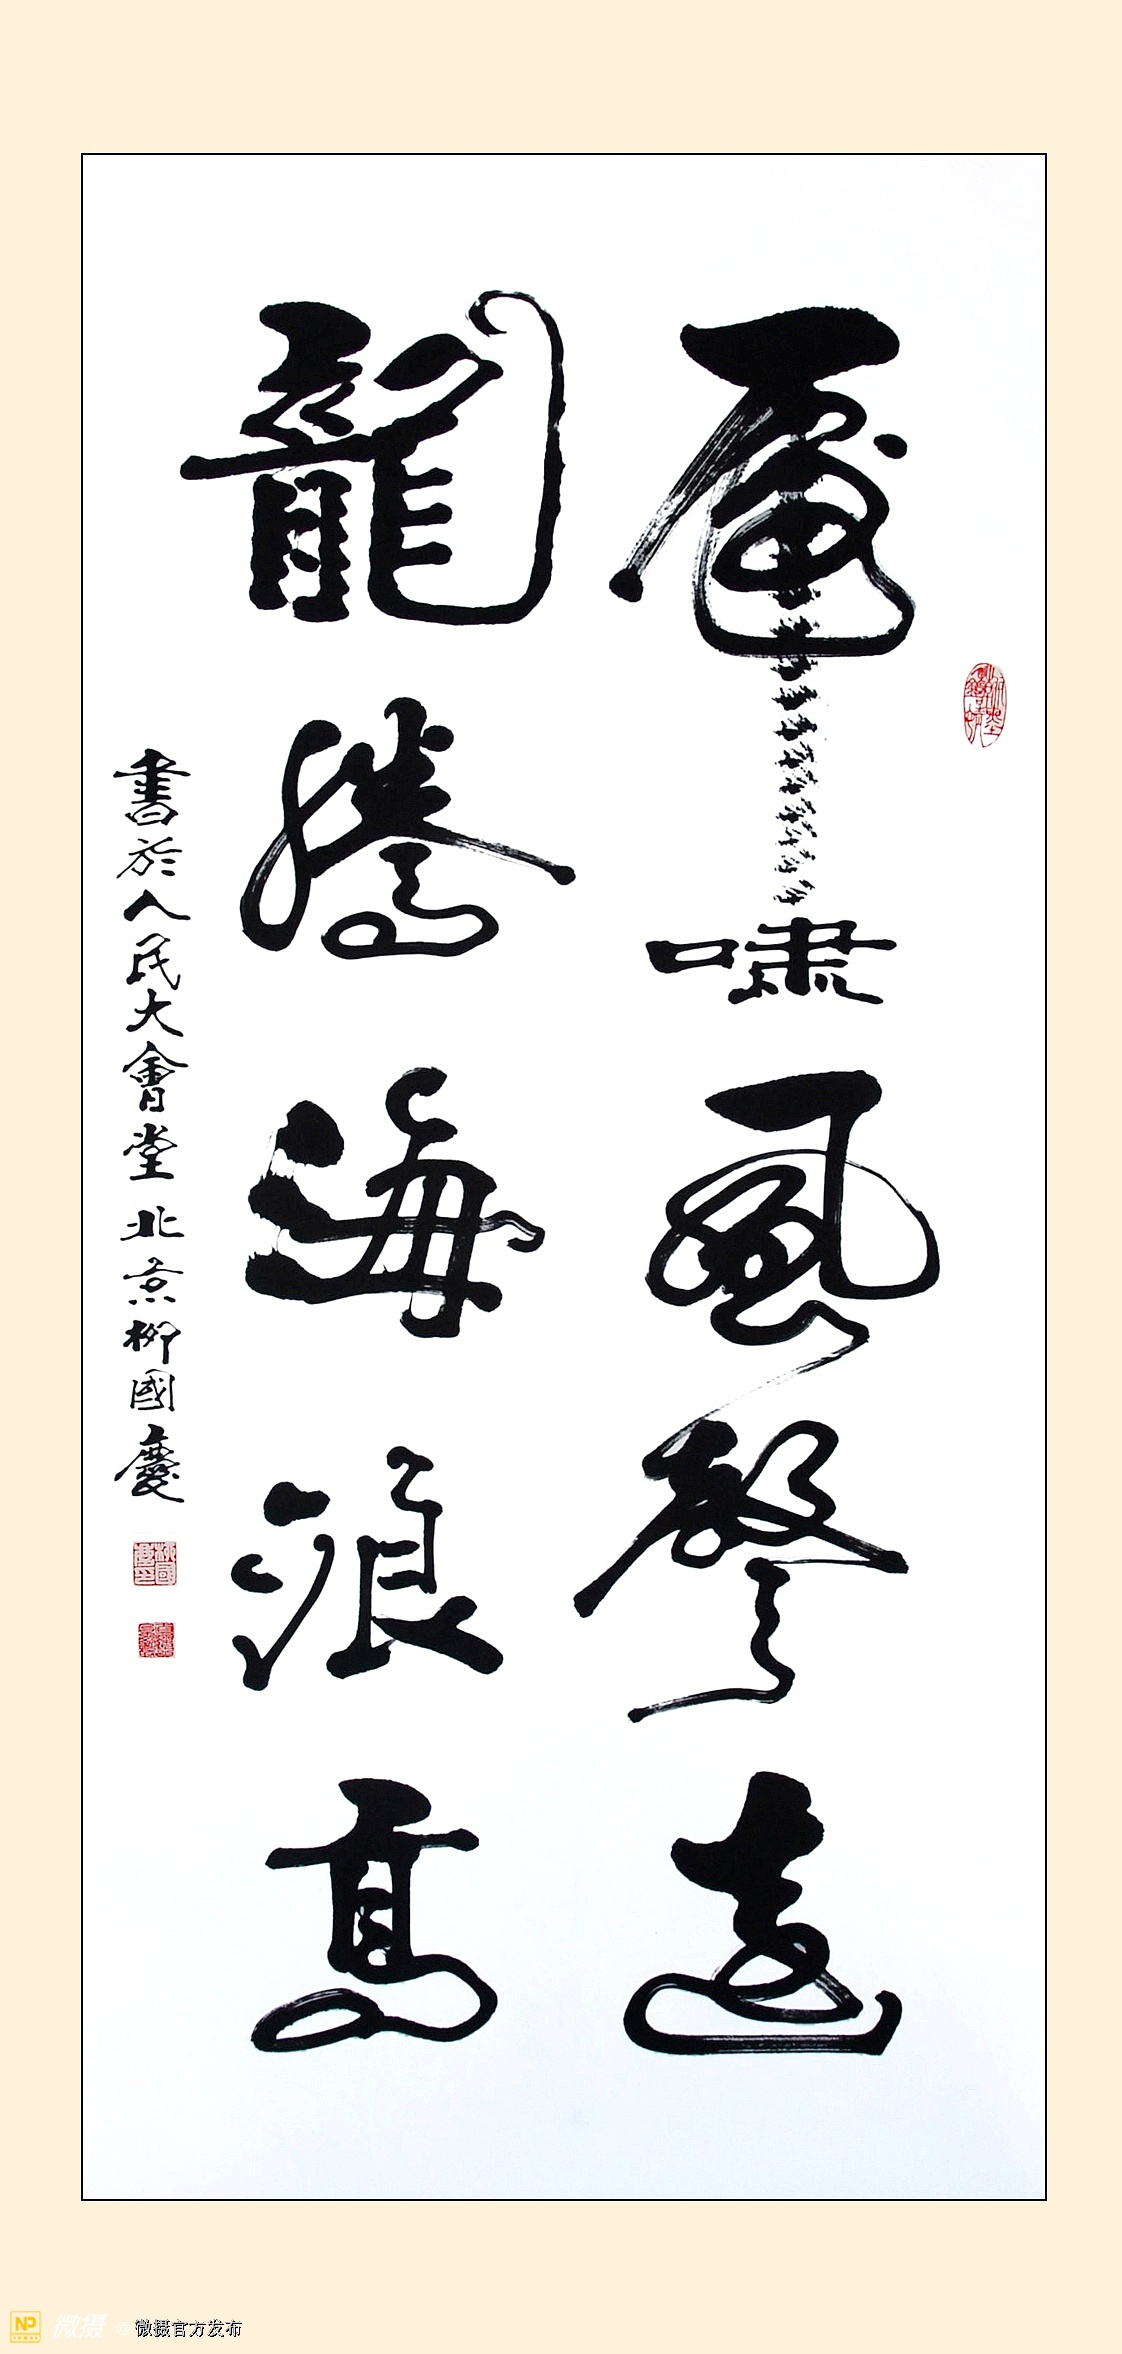 虎嘯風聲遠
龍騰海浪高
書於人民大會堂 北京柳國慶
NP 微摄 @微摄官方发布